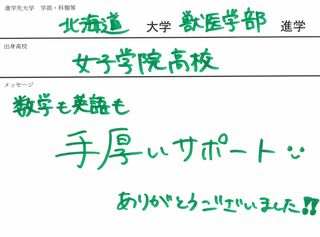 進学先大学　学部・科類等
北海道 大学 獣医学部 進学
出身高校
女子学院高校
メッセージ
数学も英語も
手厚いサポート
ありがとうございました!!